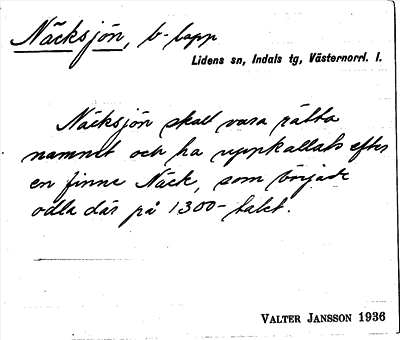 Näcksjön, b-lapp
Lidens sn, Indals tg, Västernorrl. l.
Näcksjön skall vara rätta
namnet och ha uppkallats efter
en finne Näck, som började
odla där på 1300-talet.
VALTER JANSSON 1936